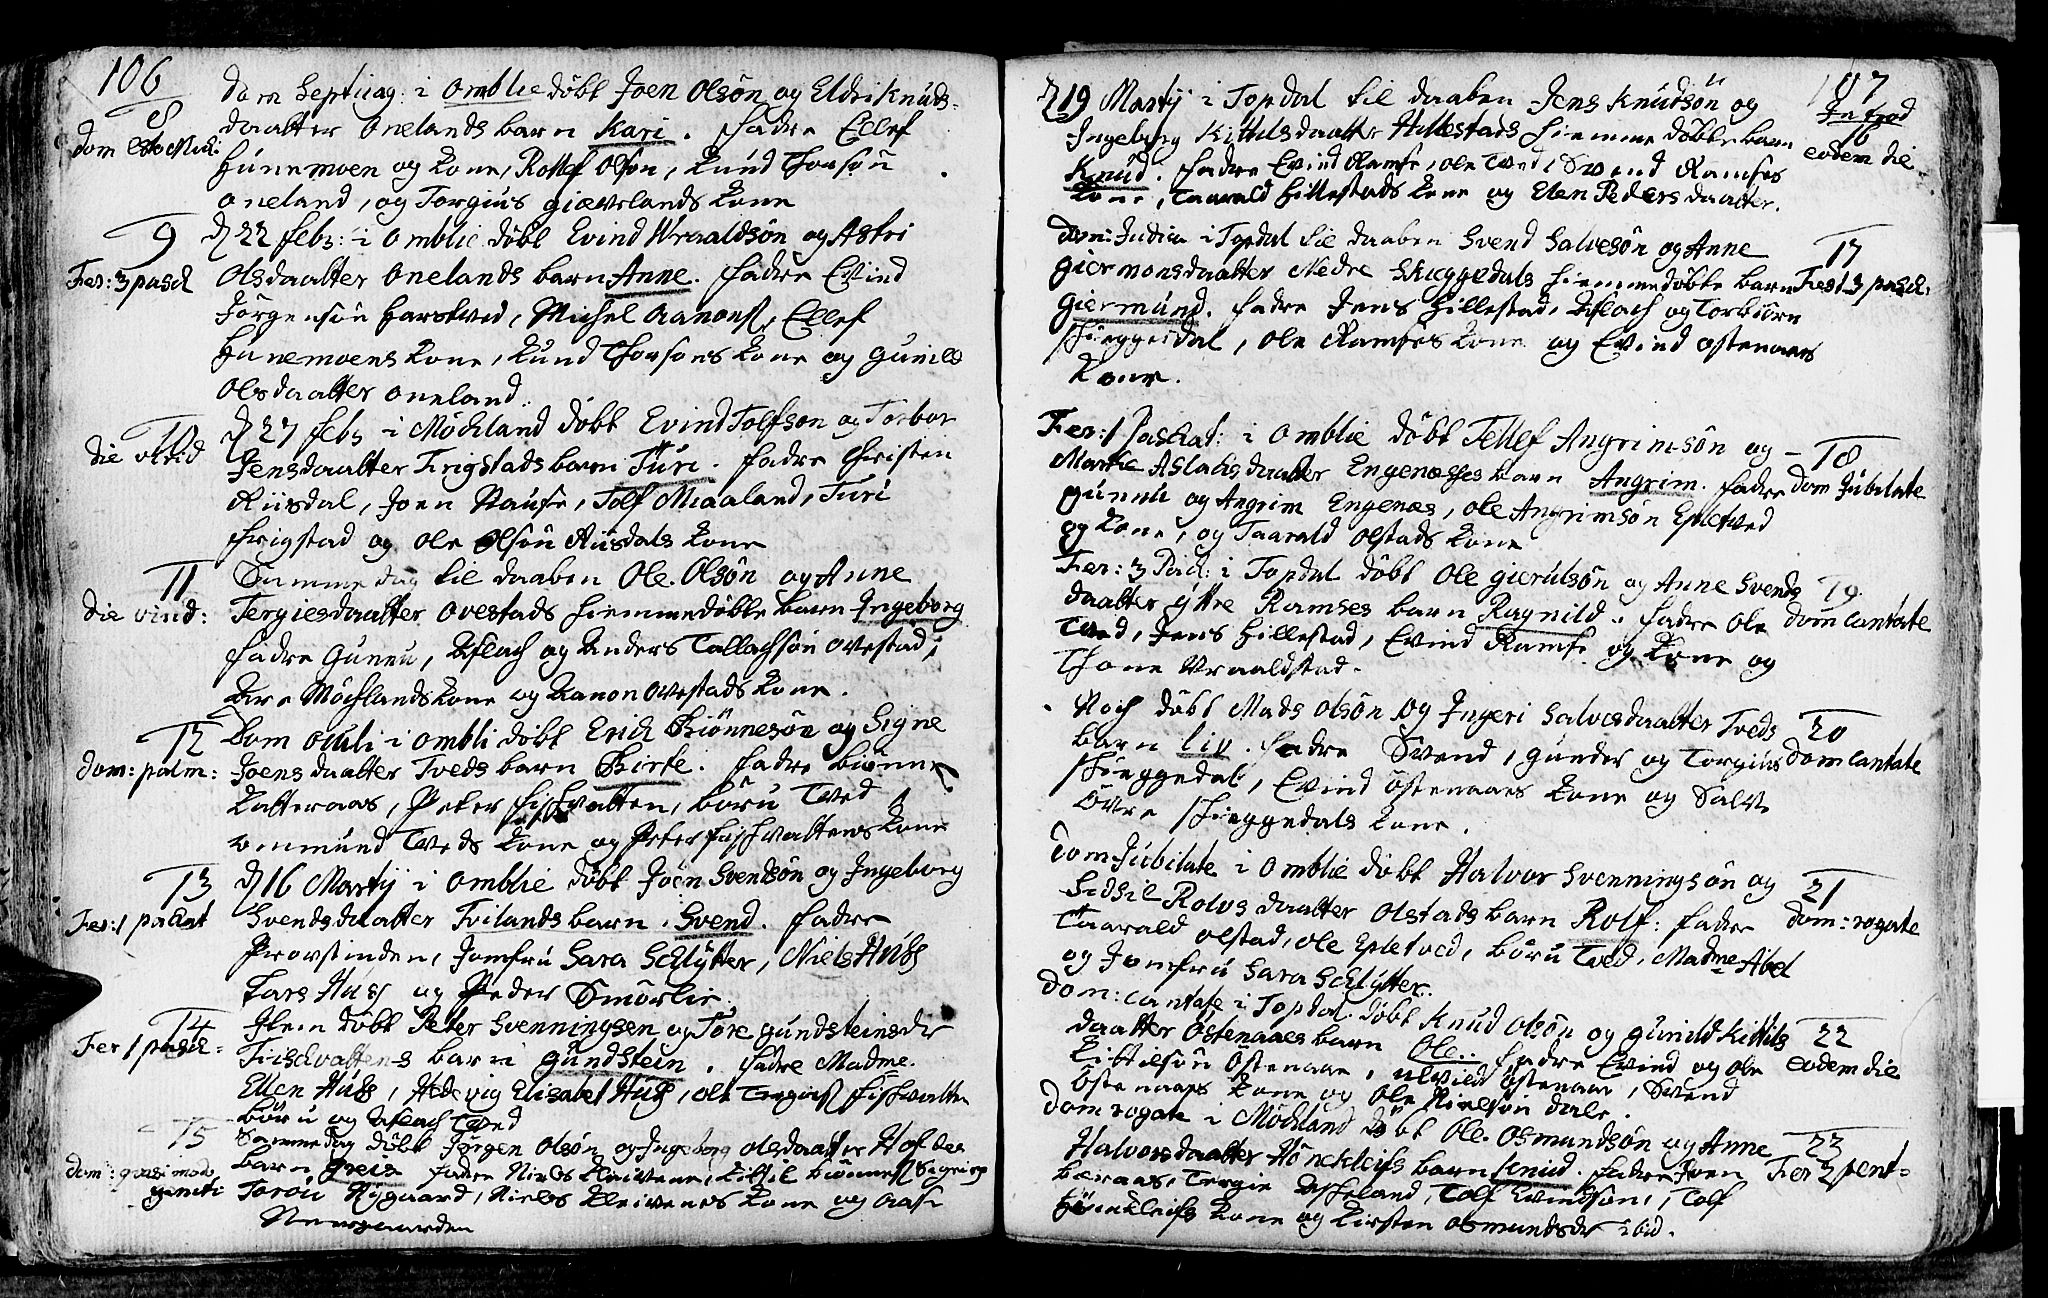 106
8
dom Esto Mihi
Dom Septuag: i Omblie döbt Joen Olsön og Eldri Knuds-
daatter Onelands barn Kari. Fadre Ellef
Hunemoen og kone, Rollef Olsön, Knud Thorsön
Oneland, og Torgius Giævelands kone
9
Fer: 3 pasch
D 22 Febr: i Omblie döbt Evind Wraaldsön og Astri
Olsdaatter Onelands barn Anne. Fadre Evind
Jörgensön Harstved, Michel Aanons, Ellef
Hunemoens kone, Knud Thorsons kone og Gunild
Olsdaatter Oneland.
10
die
D 27 Febr i Möchland döbt Evind Tolfson og Torbor
Jensdaatter Frigstads barn Turi. Fadre Christen
Riisdal, Joen Stausse, Tolf Miaaland, Turi
Frigstad og Ole Olsön Riisdals kone
11
die vird:
Samme dag til daaben Ole Olsön og Anne
Tergiesdaatter Ovestads hiemmedöbte barn Ingeborg
Fadre Gunnu, Aslach og Anders Tallachsön Ovestad,
Are Möchlands kone og Aanon Ovestads kone.
12
dom: palm:
Dom Oculi i Ombli döbt Erich Biönnesön og Signe
Joensdaatter Tveds barn Birte. Fadre Biönne
Katteraas, Peter Fischvatten, Böru Tved
Omund Tveds kone og Peter Fischvattens kone
13
Fer: 1 paschat
D 16 Martij i Omblie döbt Joen Svendsön og Ingeborg
Svendsdaatter Tvilands barn Svend. Fadre
Provstinden, Jomfru Sara Schlytter, Niels Huss
Lars Huss og Peder Smörlie.
14
Fer 1 pasch:
Item döbt Peter Svenningsen og Tore Gundsteinsdr
Fischvattens barn Gundstein. Fadre Madme.
Ellen Huss, Hedevig Elisabet Huss, Ole Tergius Fischvatten
Böru og Aslach Tved
15
dom: qvasimodo
geniti
Samme dag döbt Jörgen Olsön og Ingeborg Olsdaatter
barn Greis Fadre Niels Kleivene, Kittil
Toröu Nygaard, Niels Kleivenes kone og Aase
Neergaarden
107
Introd
16
eodem die
D 19 Martij i Topdal til daaben Jens Knudsön og
Ingeborg Kittilsdaatter Hillestads hiemmedöbte barn
Knud. Fadre Evind Ramse, Ole Tved, Svend Ramses
kone, Taarald Hillestads kone og Elen Pedersdaatter.
17
Fest 3 pasch:
Dom: Judica i Topdal til daaben Svend Salvesön og Anne
Giermonsdaatter Nedre Skieggedals hiemmedöbte barn
Giermund. Fadre Jens Hillestad, Aslach og Torbiörn
Skieggedal, Ole Ramses kone og Evind Ostenaaes
kone.
18
dom Jubilate
Fer: 1 Paschat: i Omblie döbt Tellef Angrimsön og
Marte Aslachsdaatter Engenæsses barn Angrim. Fadre
Gunnu og Angrim Engenæs, Ole Angrimsön Epletved
og kone, og Taarald Olstads kone
19
dom Cantate
Fer: 3 Pasch: i Topdal döbt Ole Gierulsön og Anne Svends
daatter Yttre Ramses barn Ragnild. Fadre Ole
Tved, Jens Hillestad, Evind Ramse og kone og
Thone Vraaldstad.
20
dom Cantate
Noch döbt Mads Olsön og Ingeri Salvesdaatter Tveds
barn Liv. Fadre Svend, Gunder og Torgius
Skieggedal, Evind Östenaaes kone og Salve
Övre Skieggedals kone.
21
dom: rogate
Dom Jubilate i Omblie döbt Halvor Svenningsön og
Sidsil Rolvsdaatter Olstads barn Rolf: Fadre
Taarald Olstad, Ole Epletved, Böru Tved, Madme Abel
og Jomfru Sara Schlytter.
22
eodem die
Dom: Cantate i Topdal döbt Knud Olsön og Gunild Kittils
daatter Östenaaes barn Ole. Fadre Evind og Ole
Kittilsön Östenaae, Östenaae, Svend
Östenaaes kone og Ole Nielsön Dale.
23
Fer 2 pent:
Dom rogate i Möchland döbt Ole Osmundsön og Anne
Halvorsdaatter Hönekleifs barn Knud. Fadre Joen
Beraas, Tergie Askeland, Tolf Evindsön, Tolf
Hönekleifs kone og Kirsten Osmundsdr ibid.